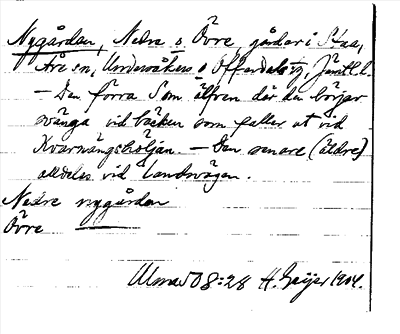 Nygården, Nedre o Övre, gårdar i Staa,
Åre sn, Undersåkers o Offerdals tg, Jämtl. l.
— Den förra S om älfven där den börjar
svänga vid bäcken som faller ut vid
Kvarnängshöljan — Den senare (äldre)
alldeles vid landsvägen.
Nedre nygården
Övre
08:28 H. Geijer 1904.